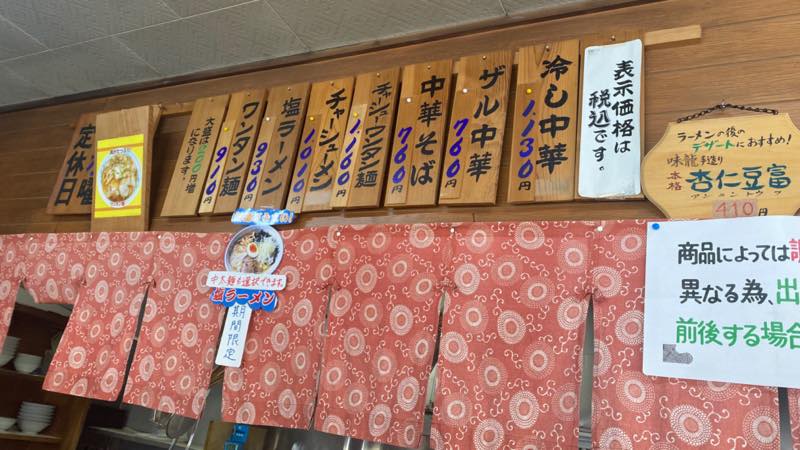 表示価格は
税込です。
冷し中華
1.130円
ザル中華
760円
中華そば
760円
チャーシュワンタン麺
1.160円
チャーシューメン
1.010円
塩ラーメン
930円
ワンタン麺
910円
大盛は
円増
になります
定休日
曜
ラーメンの後の
デザートにおすすめ!
味龍手造り
本格
杏仁豆富
アンニンドウフ
410円
中太麺も選択できます。
塩ラーメン
期間限定
商品によっては
異なる為、出
前後する場合